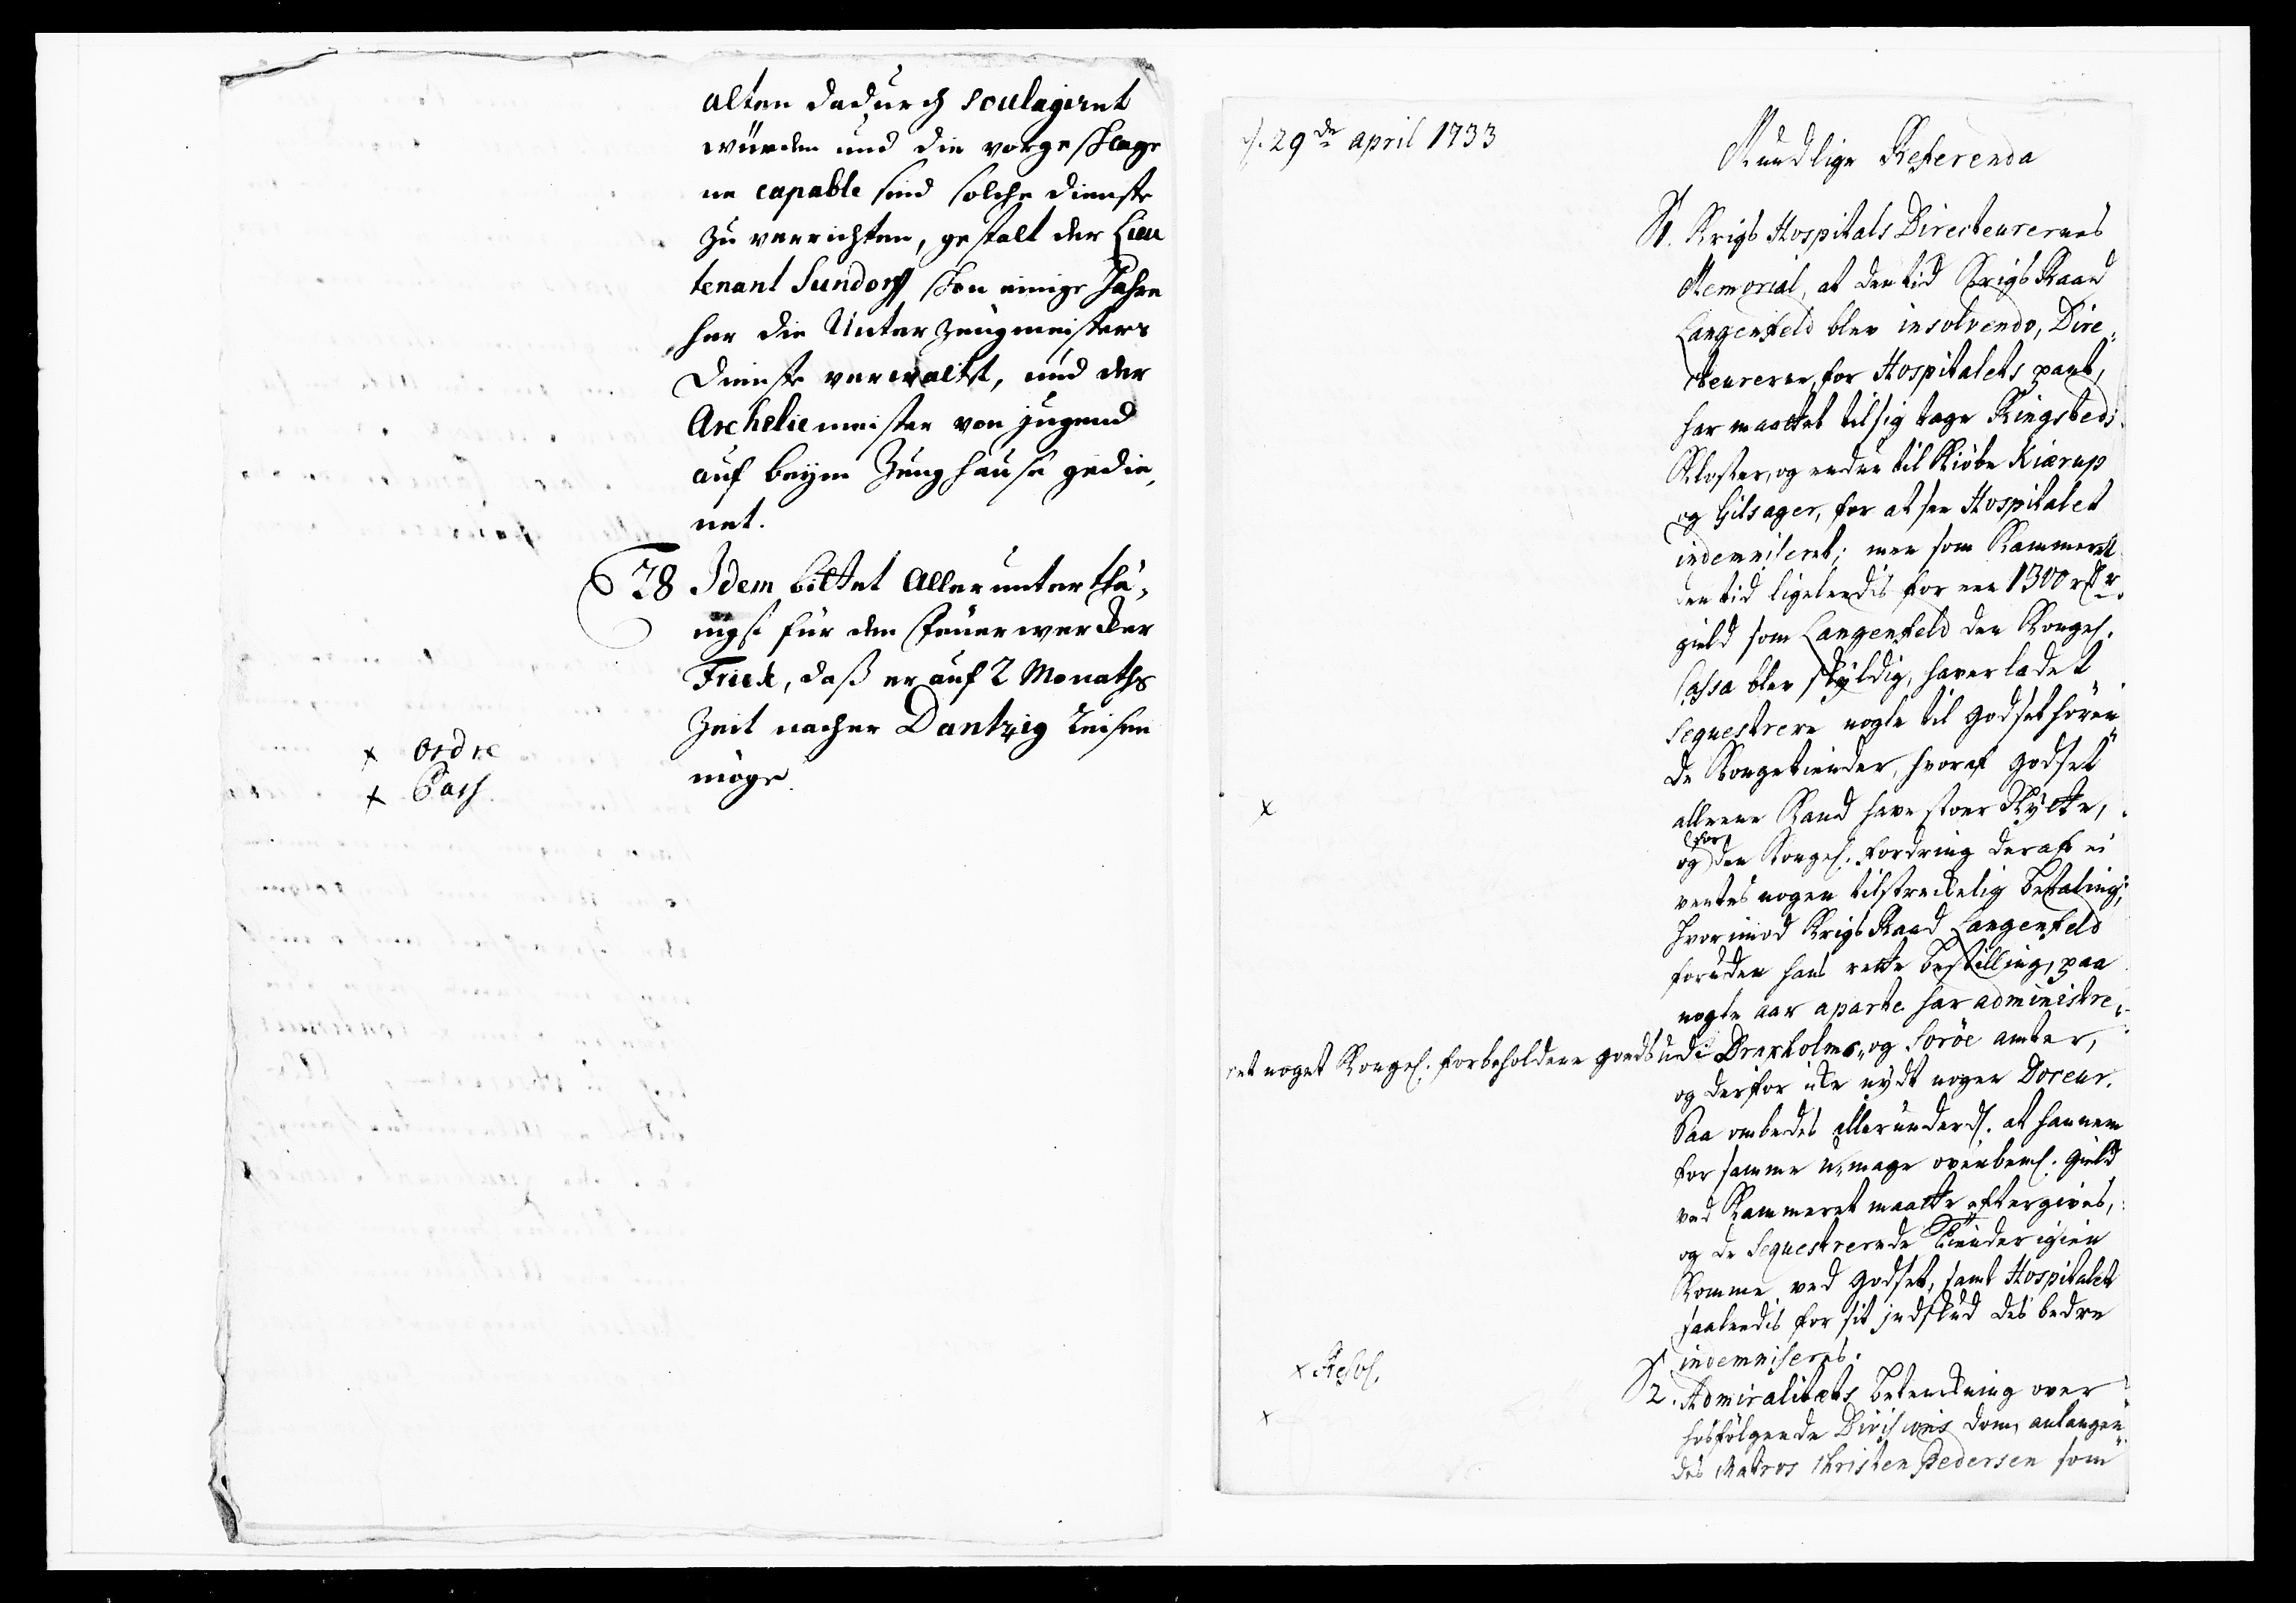 alten dadurch soulagiret
würden und die vorgeschlage
ne capable sind solche Dienste
zu verrichten, gestalt der Lieu
tenant Sundorff schon einige Jahre
her die Unter Zeugmeisters
Dienste verwaltet, und der
Archeliemeister von Jugend
auf beym Zeughause gedie,
net.
28 Idem bittet allerunterthä,
nigst für den Feuerwercker
Frick, daß er auf 2 Monaths
Zeit nacher Dantzig reisen
möge.
x ordre
x Pass.
d. 29de april 1733
Mundlige Referenda
1. Krigs Hospitals Directeurernes
Memorial, at den tid Krigs Raad
Langenfeld blev insolvendo, Dire,
cteurerne, for Hospitalets pant,
har maattet til sig tage Ringsteds
Kloster, og endnu til Kiøbe Kiærup
og Gilsager, for at see Hospitalet
indemniseret; men som Kammeret
den tid ligeleedis for een 1300 rdr
gield som Langenfeld den Kongel.
Cassa blev skyldig, haver ladet
Sequestrere nogle til godset høren
de Kongetiender, hvoraf godset
alleene Kand have stoer Nytte,
for
og den Kongel. fordring deraf ei
ventes nogen tilstreckelig betaling;
hvorimod Krigs Raad Langenfeld
foruden hans rette bestilling, paa
nogle aar aparte har administre,
ret noget Kongel. forbeholdene goeds udi Draxholms, og Sorøe amter,
og derfor icke nydt nogen Doceur.
Saa ombedes allerunderd. at hannem
for samme U,mage ovenbem. gield
ved Kammeret maatte eftergives,
og de Sequestrerede Tiender igien
Komme ved godset, samt Hospitalet
saaleedis for sit indskud des bedre
indemniseres.
x
x Resol.
2. Admiralitets Betenckning over
hosfølgende Divisions Dom, anlangen
des Matros Christen Pedersen som
x